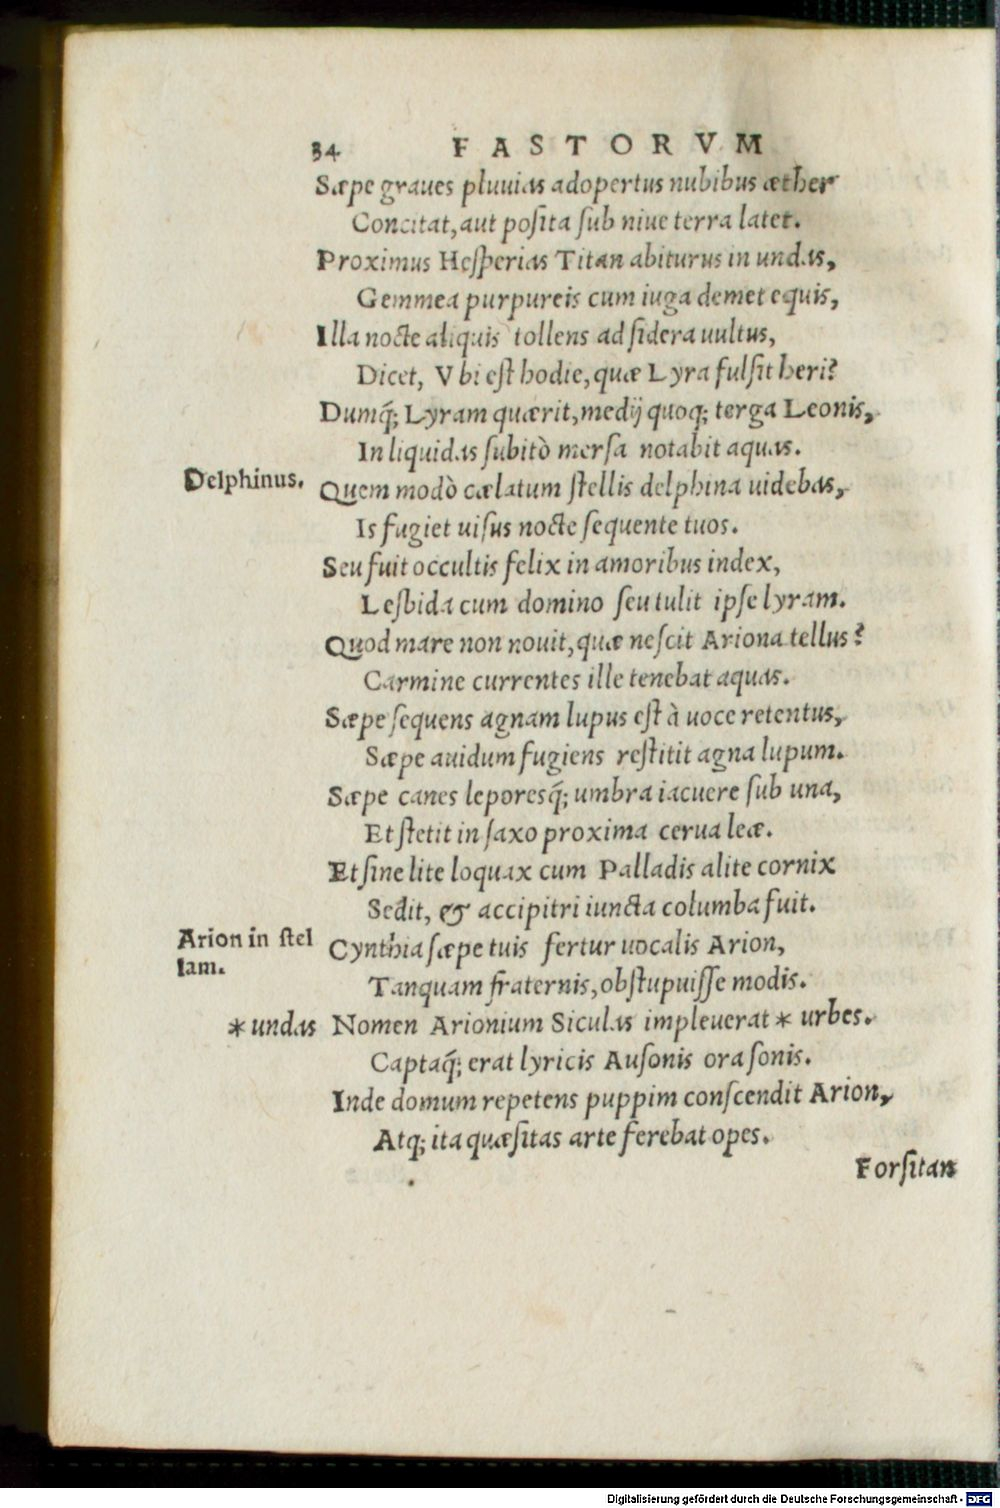 34 FASTORVM
Sæpe graues pluuias adopertus nubibus æther
Concitat, aut posita sub niue terra latet.
Proximus Hesperias Titan abiturus in undas,
Gemmea purpureis cum iuga demet equis,
Illa nocte aliquis tollens ad sidera uultus,
Dicet, Vbi est hodie, quæ Lyra fulsit heri?
Dumq́; Lyram quærit, medij quoq; terga Leonis,
In liquidas subitò mersa notabit aquas.
Delphinus. Quem modò cælatum stellis delphina uidebas,
Is fugiet uisus nocte sequente tuos.
Seu fuit occultis felix in amoribus index,
Lesbida cum domino seu tulit ipse lyram.
Quod mare non nouit, quæ nescit Ariona tellus?
Carmine currentes ille tenebat aquas.
Sæpe sequens agnam lupus est à uoce retentus,
Sæpe auidum fugiens restitit agna lupum.
Sæpe canes leporesq́; umbra iacuere sub una,
Et stetit in saxo proxima cerua leæ.
Et sine lite loquax cum Palladis alite cornix
Sedit, & accipitri iuncta columba fuit.
Arion in stel
lam.
Cynthia sæpe tuis fertur uocalis Arion,
Tanquam fraternis, obstupuisse modis.
*undas Nomen Arionium Siculas impleuerat * urbes.
Captaq́; erat lyricis Ausonis ora sonis.
Inde domum repetens puppim conscendit Arion,
Atq; ita quæsitas arte ferebat opes.
Forsitan
Digitalisierung gefördert durch die Deutsche Forschungsgemeinschaft - DFG